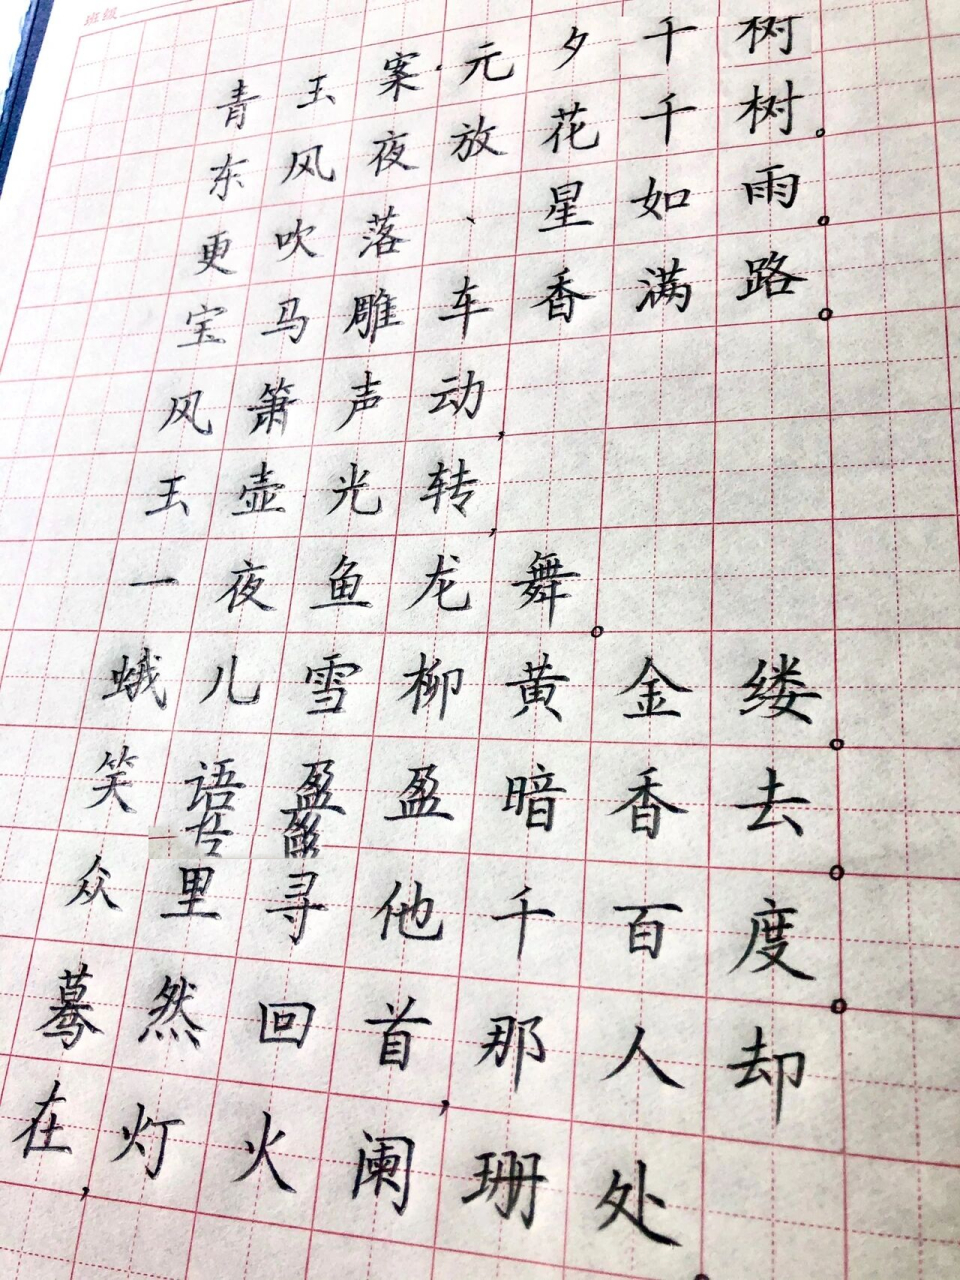 班级
青玉案·元夕千树
东风夜放花千树。
更吹落、星如雨。
宝马雕车香满路。
风箫声动,
玉壶光转,
一夜鱼龙舞。
蛾儿雪柳黄金缕。
笑语盈盈暗香去。
众里寻他千百度。
蓦然回首,那人却
在,灯火阑珊处。